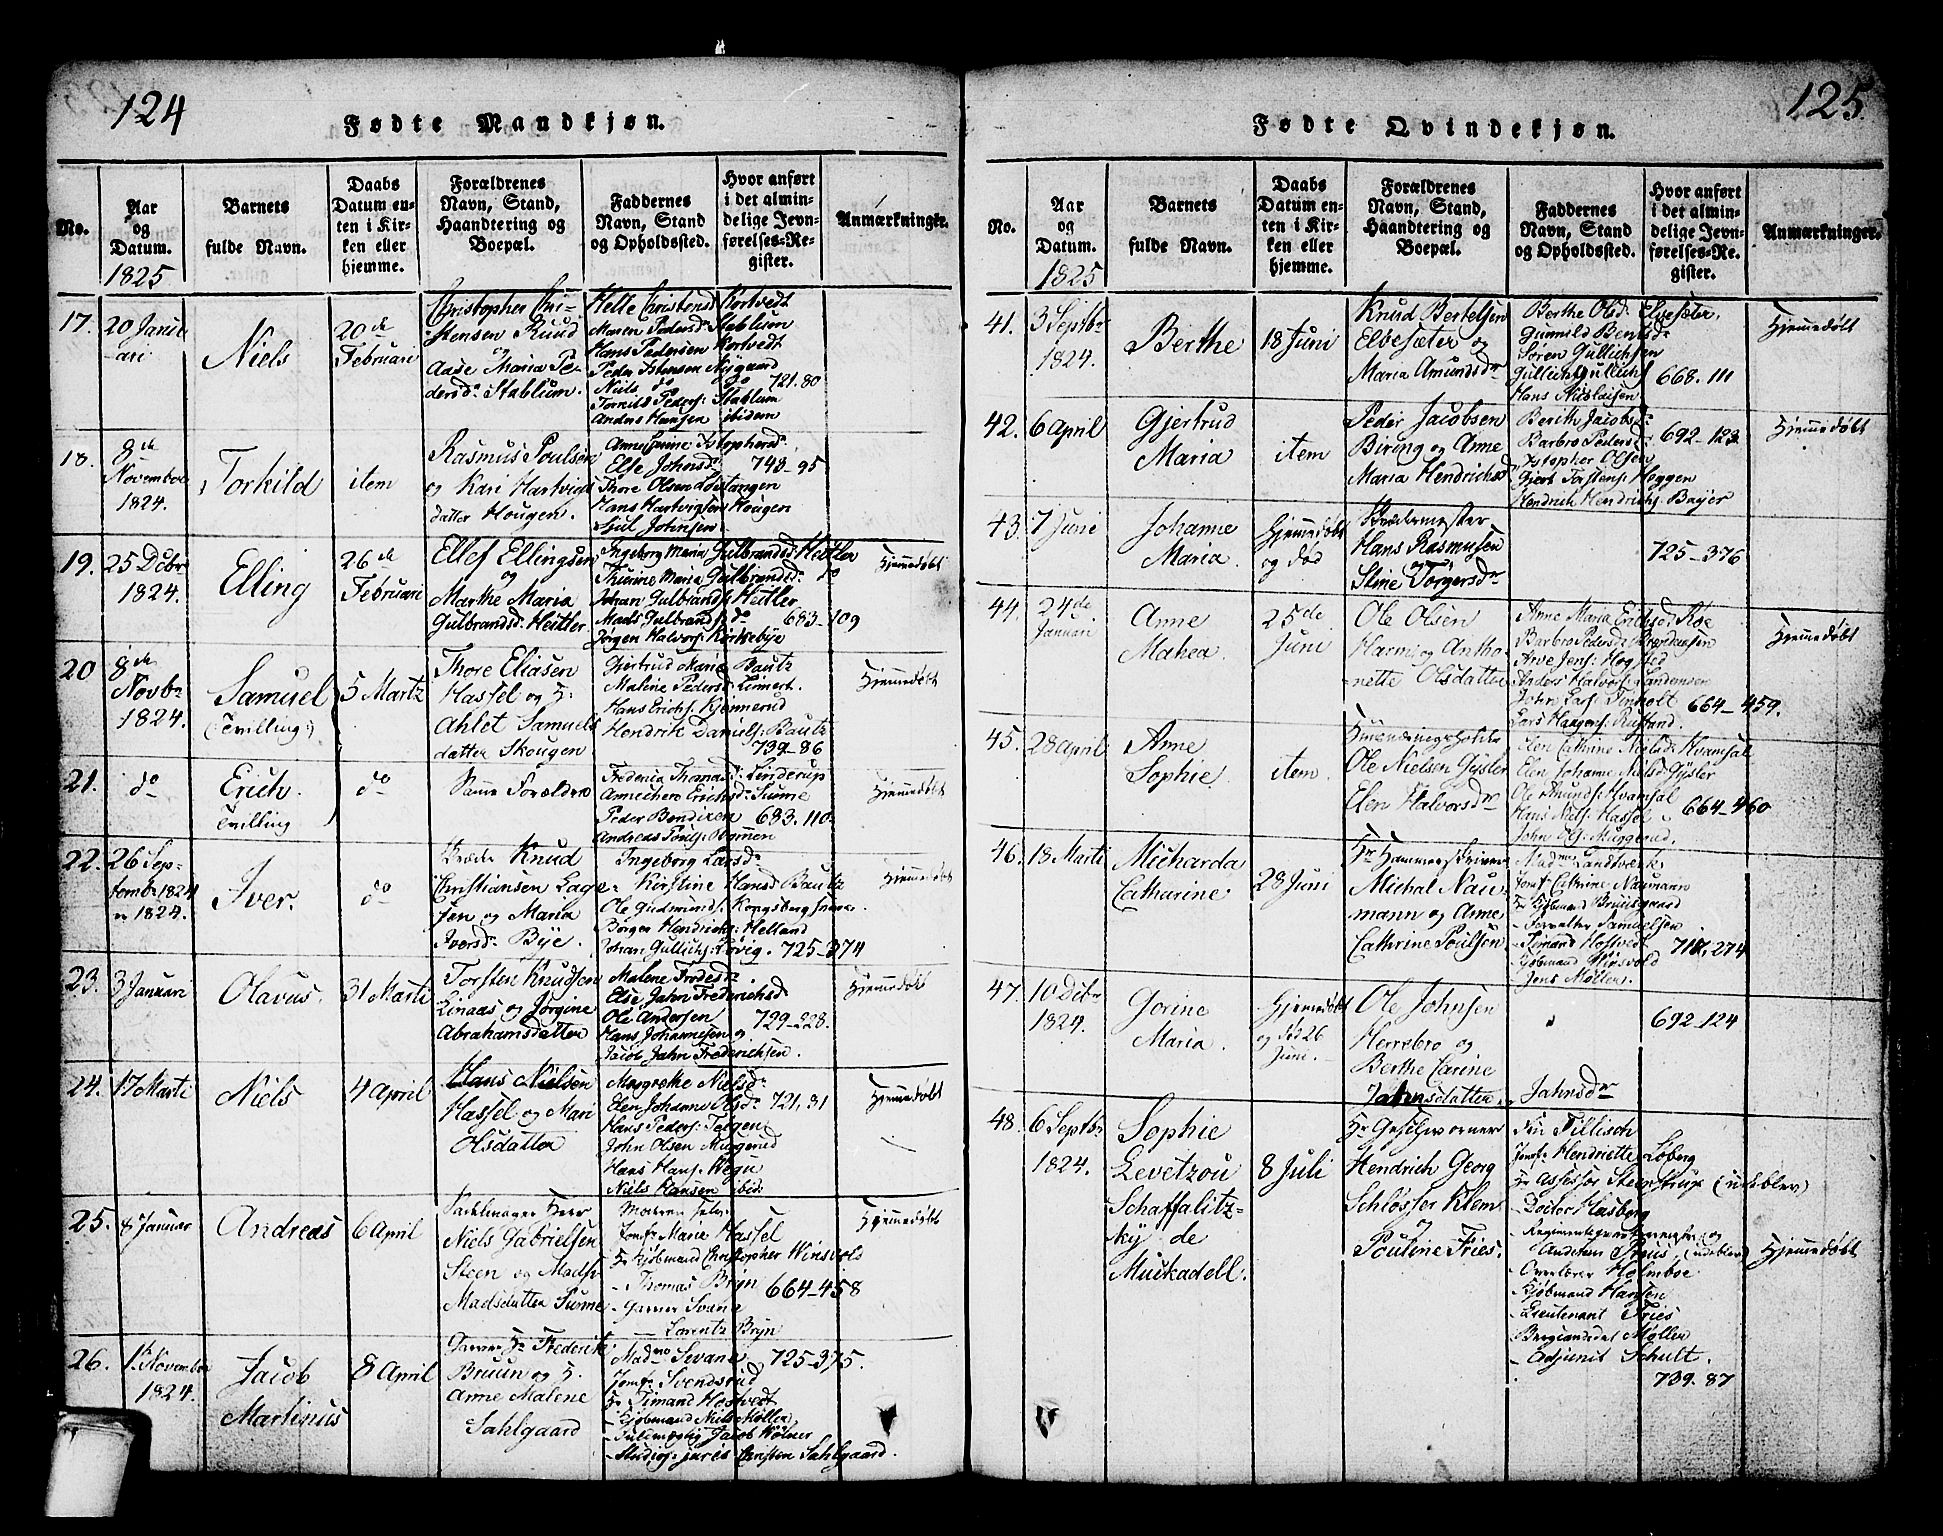 124
Fødte Mandkjøn.
No.
Aar og Datum. 1825
Barnets fulde Navn.
Daabs Datum enten i Kirken eller hjemme.
Forældrenes Navn, Stand, Haandtering og Boepæl.
Faddernes Navn, Stand og Opholdssted.
Hvor anført i det almindelige Jevnførelses-Register.
Anmærkninger.
17.
20 Janu
ari
Niels
20de
Februari
Christopher Chri-
stensen Ruud
og
Aase Maria Pe-
dersdr Stablum.
Helle Christensd Kortvedt
Maren Pedersd Stablum
Hans Pedersen Kortvedt
Peder Nygaard
Niels do do 721.80
Tornils Peders: Stablum
Anders Hansen ibidem
18.
8de
November
1824.
Torkild
item
Rasmus Poulsen
og Kari Hartvigs
datter Hougen.
Else Johnsdr 743-95
Thore Olsen Løstangen
Hans Hartvigsen Hougen
Johnsen
19.
25 Debr
1824.
Elling
26de
Februari
Ellef Ellingsen
og
Marthe Maria
Gulbrandsd: Heitler
Ingeborg Maria Gulbrandsd: Heitler
Thurine Maria Gulbrandsd: do
Johan Gulbrands: Heitler
Mads Gulbrands: do 683-109
Jørgen Halvors: Kirkebye
Hjemmedøbt
20
8de
Novbr
1824.
Samuel
(Tvilling)
5 Martz
Thore Eliasen
Hassel og H:
Ahlet Samuels
datter Skougen
Gjertrud Marie Bautz
Malene Pedersd: Limert.
Hans Erichs: Kjennerud
Hendrik Daniels: Bautz
739-86
Hjemmedøbt
21.
do
Erich.
Tvilling
do
Samme Forældre
Frederica Thomasd: Linderup
Annichen Erichsd: Sumne
Peder Bendixen 683.110.
Andreas Pouls: Vogmen
Hjemmedøbt
22.
26 Sep-
tembr 1824
1824.
Iver.
do
Knud
Christiansen Lage
sen og Maria
Iversd: Bye.
Ingeborg Larsdr
Kirstine Hansd Bautz
Ole Gudmunds: Kongsberg
Børger Hendrichs: Helland
Johan Gullichs: Løvig. 725-374
Hjemmedøbt
23.
3 Januari
Olavus.
31 Marti
Torsten Knudsen
Linaas og Jørgine
Abrahamsdatter
Malene Fredsdr.
Else Jahn Frederichsd
Ole Andersen
Hans Johannesen og 729-228.
Jacob Jahn Frederichsen.
Hjemmedøbt
24.
17 Marti
Niels
4 april
Hans Nielsen
Hassel og Mari
Olsdatter
Margrethe Nielsdr
Elen Johanne Olsdr 721.81
Hans Peders: Teigen
John Olsen Muggerud
Hans Hans: Wegu
Niels Hansen ibid:
Hjemmedøbt
25.
8 Januar
Andreas
6 april
Sadelmager Herr
Niels Gabrielsen
Steen og Mads
Madsdatter Sumne
Moderen selv
Jomfr Marie Hassel
Hr Kjøbmand Christopher Winsvols
- Thomas Bryn 664-458
- Garver Svane
- Lorentz Bryn
Hjemmedøbt
26.
1 November
1824.
Jacob
Martinus
8 april
Garver Hr Frederik
Bruun og H.
Anne Malene
Sahlgaard
Madme Svane 725-375.
Jomfr Svendsrud
Hr Timand Hostvedt
- Kjøbmand Niels Møller
Jacob Wølner
- Studios: juris Christen Sahlgaard.
125.
Fødte Qvindekjøn.
No.
Aar og Datum. 1825
Barnets fulde Navn.
Daabs Datum enten i Kirken eller hjemme.
Forældrenes Navn, Stand, Haandtering og Boepæl.
Faddernes Navn, Stand og Opholdssted.
Hvor anført i det almindelige Jevnførelses-Register.
Anmærkninger.
41.
3 Septbr
1824.
Berthe
18 Juni
Knud Bertelsen
Elvesæter og
Maria Amundsdr
Berthe Olsd: Elvesæter,
Gunnild Bentsdr
Søren Gullichsen
Gullich Gullichs 668.111
Hans Nicolaisen
Hjemmedøbt
42.
6 april
Gjertrud
Maria
item
Peder Jacobsen
Biring og Anne
Maria Hendrichsd
Berith Jacobsdr
Barbro Pedersd: 692-123
Christopher Olsen
Gjert Torstens: Heggen
Hendrich Hendrichs: Bayer
Hjemmedøbt
43.
7 Juni
Johanne
Maria.
Hjemmedøbt
og død
Hans Rasmusen
og
Stine Torgersdr
725-376
44.
24de
Januari
Anne
Mahea.
25de
Juni
Ole Olsen
Harmi og Antho
nette Olsdatter
Anne Maria Erichsd: Røe
Barbro Pedersdr
Arve Jens: Hog Hed
Anders Halvors: Sandensen
John Lars: Tinholt 664-459.
Lars Haagens: Rustand.
Hjemmedøbt
45.
28 april
Anne
Sophie.
item.
Ole Nielsen Gysler
Elen Halvorsdr
Elen Cathrine Nielsd: Kvamsal
Elen Johanne Nielsd: Gysler
Ole Amunds: Kvamsal 664-460
Hans Niels: Hassel
John Ols: Muggerud
46.
18 Marti
Micharda
Catharine
28 Juni
Hr Hammerskriver
Michal Nau
mann og Anne
Cathrine Poulsen
Madme Landtværk
Jomf: Cathrine Naumann
Hr Kjøbmand Bruusgaard
- Forvalter Samuelsen
- Timand Hostvedt
- Kjøbmand Winsvold 717.274
Jens Møller.
47.
10 Debr
1824.
Gorine
Maria.
Hjemmedøbt
og død 26
Juni.
Ole Johnsen
Herrebro og
Berthe Carine
Jahnsdatter.
Jahnsdr
692-124
48.
6 Septbr
1824.
Sophie
Levetzou
Schaffalitz-
ky de
Muckadell.
8 Juli
Hr Geschwornner
Hendrich Georg
Schlösser Klem
og
Pouline Fries.
Fru Fillisch
Jomfr Hendriette Løberg
Hr Assessor Steenstrup (udeblev)
- Doctor Hasberg
Regimentsqvarteermester og
Auditeur Prius, (udeblev)
- Overlærer Holmboe
- Kjøbmand Hansen
- Lieutenant Fries
- Bergcandidat Møller
- Adjunct Schult.
739.87
Hjemmedøbt